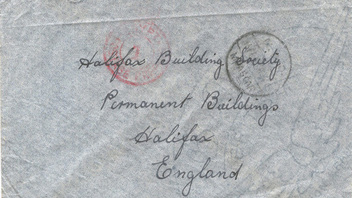 Halifax Building Society
Permanent Buildings
Halifax
England